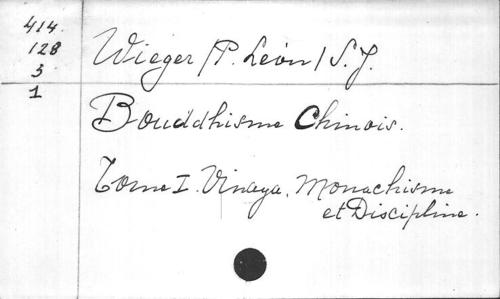 414.
128
5
1
Wieger /P. Léon/ S. J.
Bouddhisme Chinois.
Tome I. Vinaya. Monachisme
et Discipline.